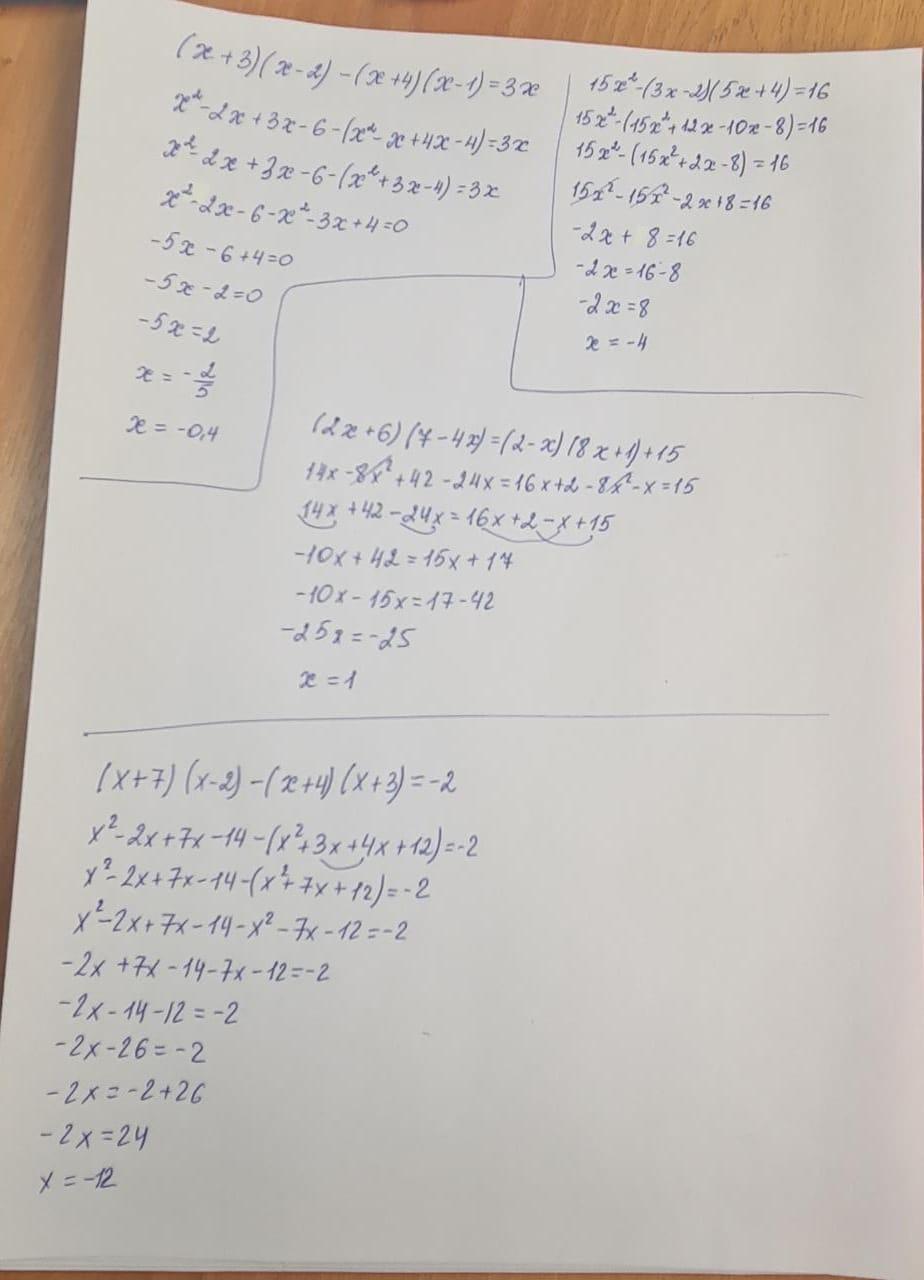 (x+3)(x-2)-(x+4)(x-1)=3x
x²-2x+3x-6-(x²-x+4x-4)=3x
x²-2x+3x-6-(x²+3x-4)=3x
x²-2x-6-x²-3x+4=0
-5x-6+4=0
-5x-2=0
-5x=2
x=-2/5
x=-0,4
15x²-(3x-2)(5x+4)=16
15x²-(15x²+12x-10x-8)=16
15x²-(15x²+2x-8)=16
15x²-15x²-2x+8=16
-2x+8=16
-2x=16-8
-2x=8
x=-4
(2x+6)(7-4x)=(2-x)(8x+1)+15
14x-8x²+42-24x=16x+2-8x²-x=15
14x+42-24x=16x+2-x+15
-10x+42=15x+17
-10x-15x=17-42
-25x=-25
x=1
(x+7)(x-2)-(x+4)(x+3)=-2
x²-2x+7x-14-(x²+3x+4x+12)=-2
x²-2x+7x-14-(x²+7x+12)=-2
x²-2x+7x-14-x²-7x-12=-2
-2x+7x-14-7x-12=-2
-2x-14-12=-2
-2x-26=-2
-2x=-2+26
-2x=24
x=-12